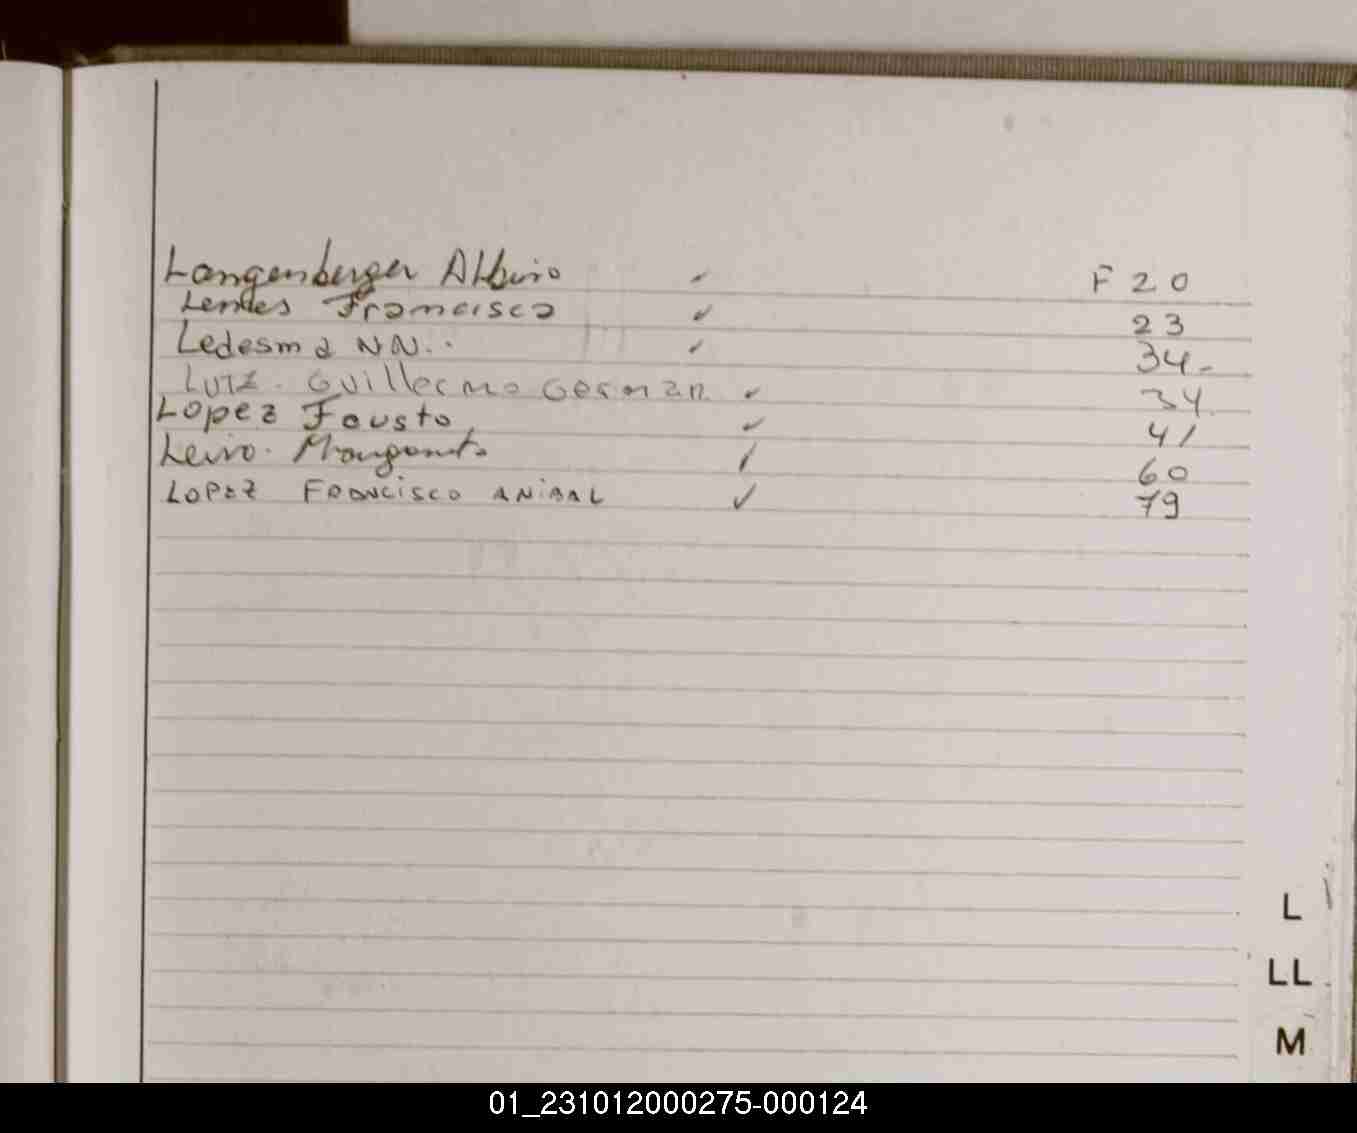 Langenberger Albino ✓ F 20
Lemes Francisca ✓ 23
Ledesma NN.. ✓ 34-
LUTZ. Guillermo German ✓ 34
Lopez Fausto ✓ 41
Leiro. Margarita ✓ 60
LOPEZ FRANCISCO ANIBAL ✓ 79
L
LL
M
01_231012000275-000124